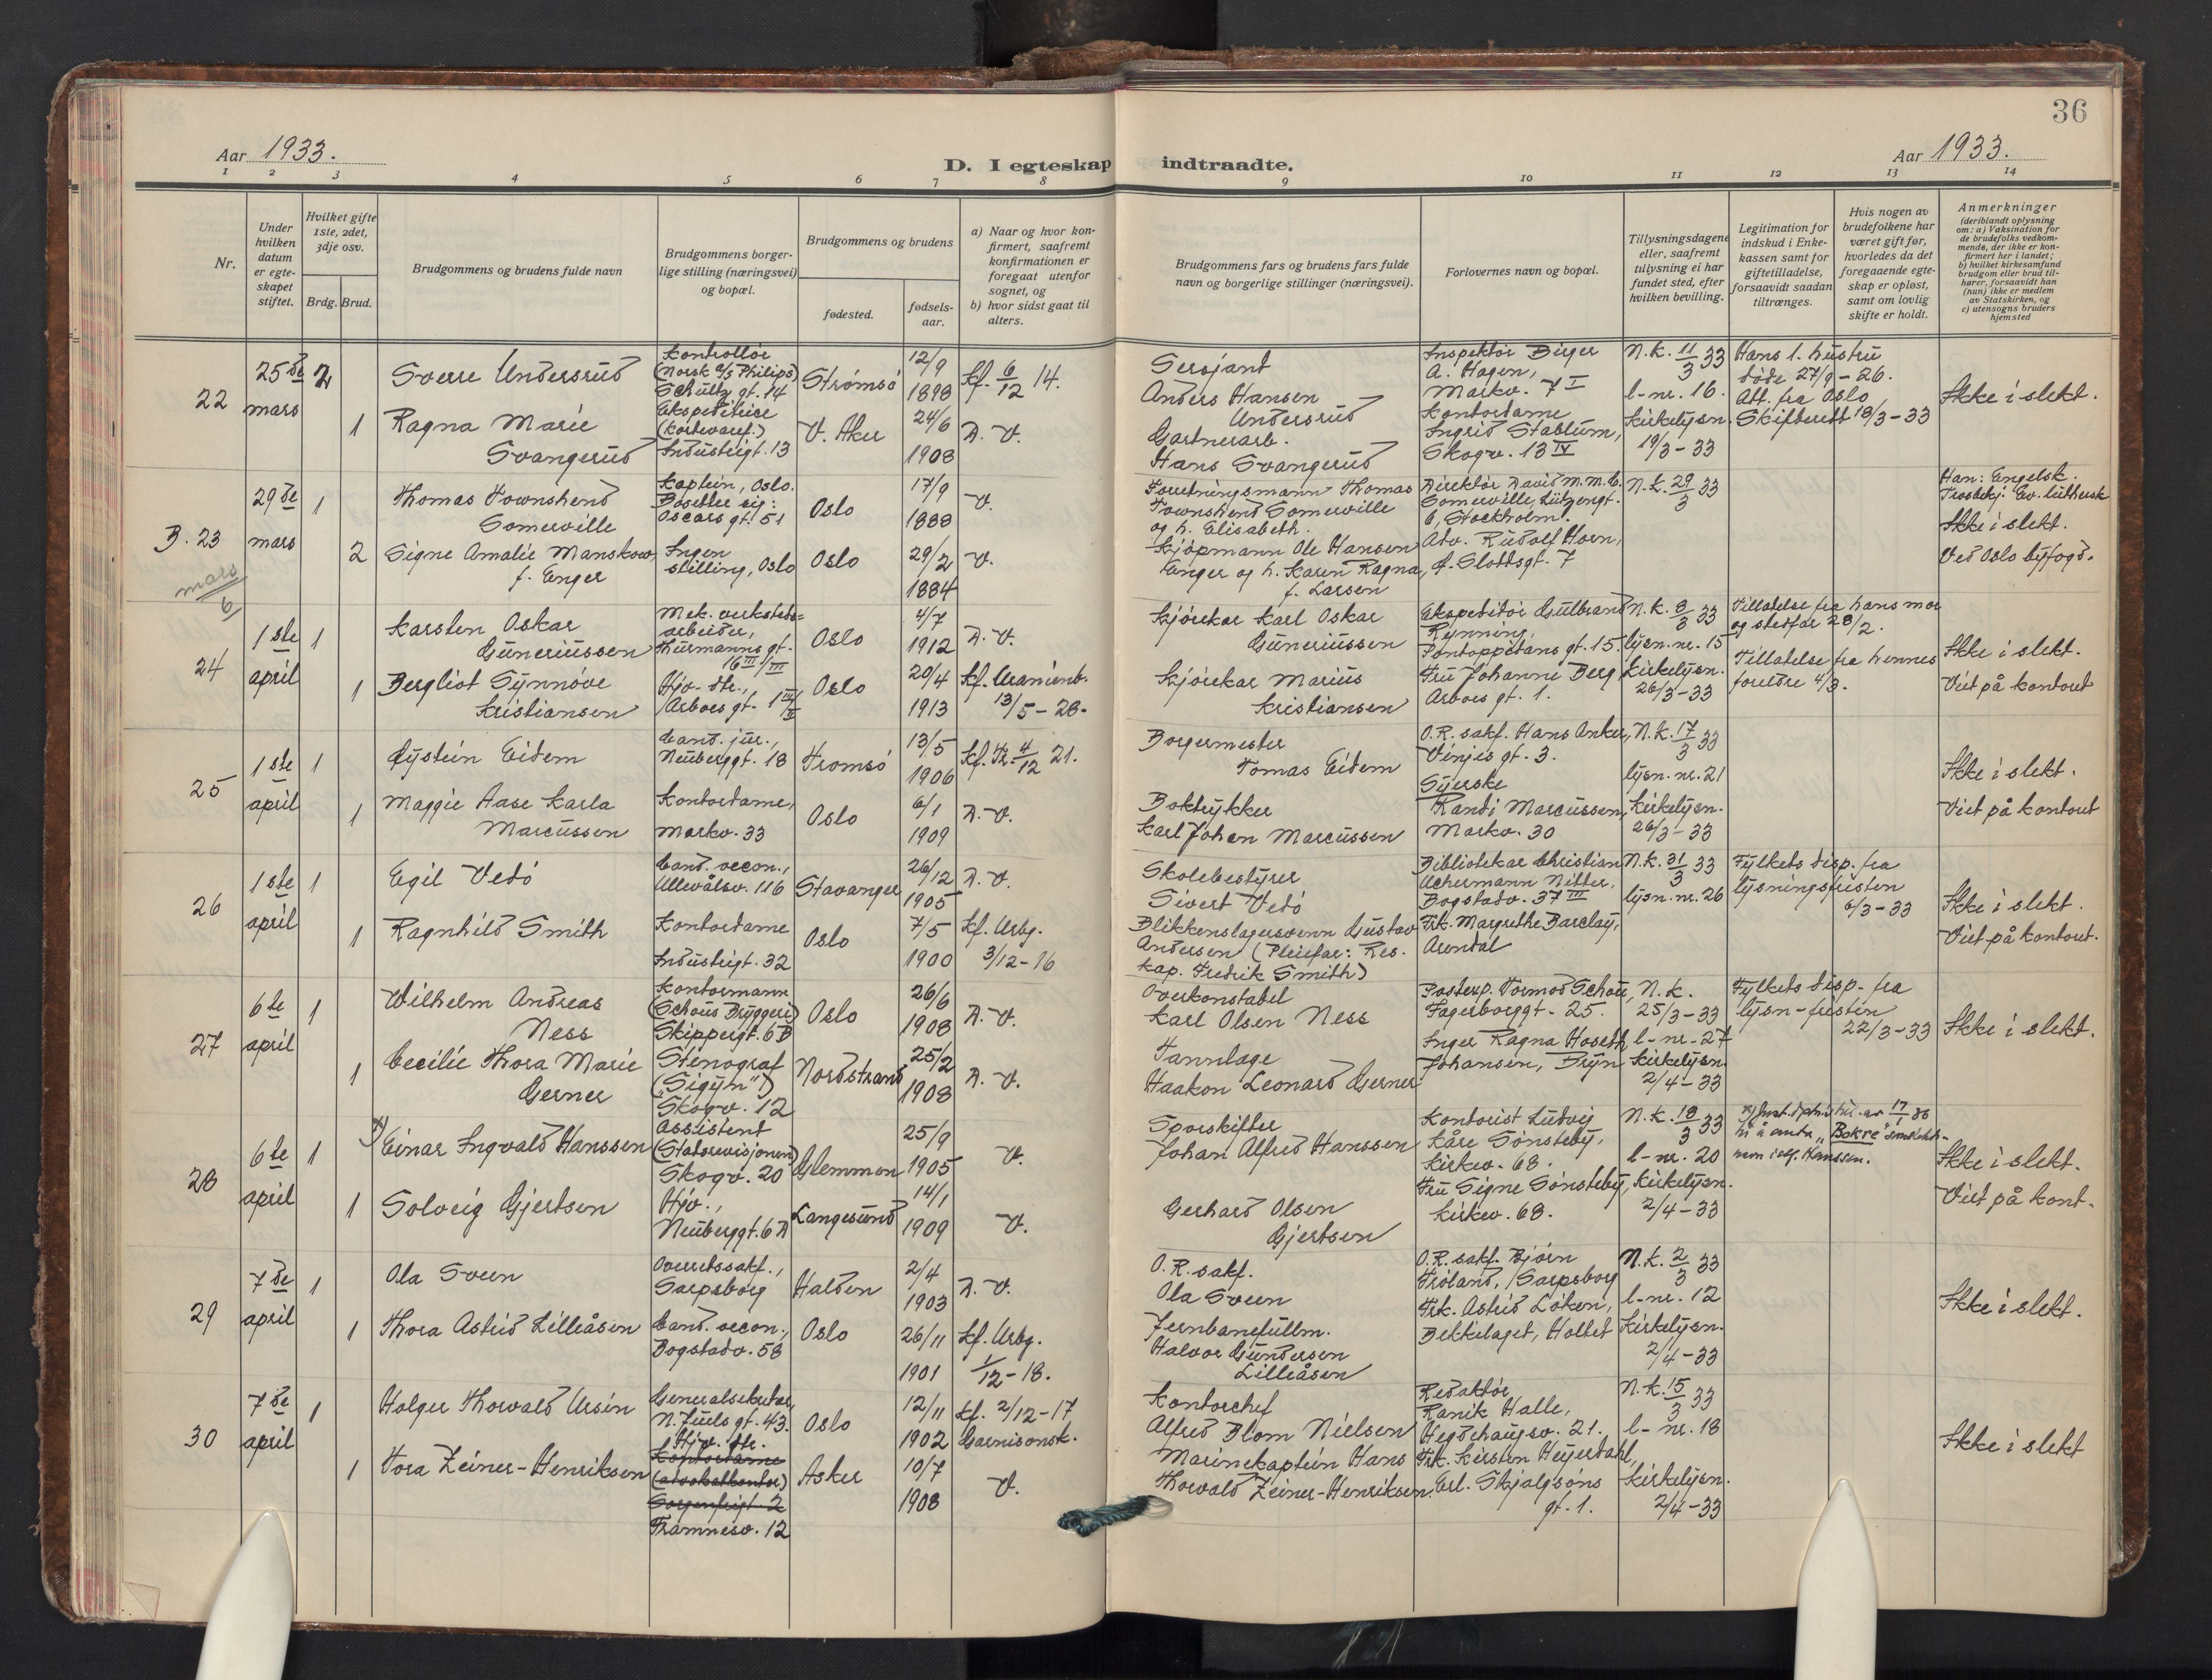 36
Aar 1933.
D. I egteskap indtraadte.
Aar 1933.
1 2 3 4 5 6 7 8 9 10 11 12 13 14
Nr.
Under hvilken datum er egteskapet stiftet.
Hvilket gifte 1ste, 2det, 3dje osv.
Brdg. Brud.
Brudgommens og brudens fulde navn
Brudgommens borgerlige stilling (næringsvei) og bopæl.
Brudgommens og brudens
fødested.
fødselsaar.
a) Naar og hvor konfirmert, saafremt konfirmationen er foregaat utenfor sognet, og
b) hvor sidst gaat til alters.
Brudgommens fars og brudens fars fulde navn og borgerlige stillinger (næringsvei).
Forlovernes navn og bopæl.
Tillysningsdagene eller, saafremt tillysning ei har fundet sted, efter hvilken bevilling.
Legitimation for indskud i Enkekassen samt for giftetilladelse, forsaavidt saadan tiltrænges.
Hvis nogen av brudefolkene har været gift før, hvorledes da det foregaaende egteskap er opløst, samt om lovlig skifte er holdt.
Anmerkninger
(deriblandt oplysning om: a) Vaksination for de brudefolks vedkommende, der ikke er konfirmert her i landet;
b) hvilket kirkesamfund brudgom eller brud tilhører, forsaavidt han (hun) ikke er medlem av Statskirken, og
c) utensogns bruders hjemsted
22
25de mars
2
Sverre Undersrud
Kontrollør
(Norsk a/s Philips)
Schultz gt. 14
Strømsø
12/9
1898
Kf. 6/12 14.
Sersjant
Anders Hansen
Undersrud
Inspektør Birger
A. Hagen,
Markv. 7 I
N.K. 11/3 33
l-nr. 16.
Hans 1. hustru
døde 27/9-26.
Att. fra Oslo
Skifterett 18/3-33
Ikke i slekt.
1
Ragna Marie
Svangerud
Ekspeditrice
(kortevaref.)
Industrigt. 13
V. Aker
24/6
1908
D. V.
Gartnerarb.
Hans Svangerud
Kontordame
Ingrid Stablum,
Skogv. 13 IV
Kirkelysn.
19/3-33
B. 23
29de mars
1
Thomas Townshend
Somerville
Kaptein, Oslo.
Bosetter sig:
Oscars gt. 51
Oslo
17/9
1888
V.
Forretningsmann Thomas
Townshend Somerville
og h. Elisabeth.
Direktør David M. M. C.
Somerville, Lützengt.
6, Stockholm.
N.K. 29/3 33
Han: Engelsk.
Trosbekj. Ev. luthersk
Ikke i slekt.
Ved Oslo byfogd.
2
Signe Amalie Manskow,
f. Enger
Ingen
stilling, Oslo
Oslo
29/2
1884
V.
Kjøpmann Ole Hansen
Enger og h. Karen Ragna,
f. Larsen
Adv. Rudolf Horn,
d. Slottsgt. 7
mars
6
24
1ste april
1
Karsten Oskar
Guneriussen
Mek. verksteds=
arbeider,
Thurmanns gt.
16 III/III
Oslo
4/7
1912
D. V.
Kjørekar Karl Oskar
Guneriussen
Ekspeditør Gulbrand
Rynning,
Pontoppidans gt. 15.
N.K. 8/3 33
lysn. nr. 15
Tillatelse fra hans mor
og stedfar 28/2.
Ikke i slekt.
Viet på kontoret
1
Bergliot Synnøve
Kristiansen
Hjv. dtr.,
Arboes gt. 1
Oslo
20/4
1913
Kf. Uranienb.
13/5-28.
Kjørekar Marius
Kristiansen
Fru Johanne Berg
Arboes gt. 1.
Kirkelysn.
26/3-33
Tillatelse fra hennes
foreldre 4/3.
25
1ste april
1
Øystein Eidem
Cand. jur.,
Neuberggt. 18
Tromsø
13/5
1906
Kf. Tr. 4/12 21.
Borgermester
Tomas Eidem
O.R. sakf. Hans Anker,
Vinjes gt. 3.
N.K. 17/3 33
lysn. nr. 21
Ikke i slekt.
Viet på kontoret
1
Maggie Aase Karla
Marcussen
Kontordame,
Markv. 33
Oslo
6/1
1909
D. V.
Boktrykker
Karl Johan Marcussen
Syerske
Randi Marcussen,
Markv. 30
Kirkelysn.
26/3-33
26
1ste april
1
Egil Vedø
Cand. oecon.,
Ullevålsv. 116
Stavanger
26/12
1905
D. V.
Skolebestyrer
Sivert Vedø
Bibliotekar Christian
Achermann Ritter,
Bogstadv. 37 III
N.K. 31/3 33
lysn. nr. 26
Fylkets disp. fra
lysningsfristen
6/3-33
Ikke i slekt.
Viet på kontoret.
1
Ragnhild Smith
Kontordame
Industrigt. 32
Oslo
7/5
1900
Kf. Urbg.
3/12-16
Blikkenslagersvenn Gustav
Andersen (Pleiefar: Res.
kap. Fredrik Smith)
Frk. Margrethe Barclay,
Arendal
27
6te april
1
Wilhelm Andreas
Ness
Kontormann
(Schous Bryggeri)
Skippergt. 6B
Oslo
26/6
1908
D. V.
Overkonstabel
Karl Olsen Ness
Postexp. Tormod Schou,
Fagerborggt. 25.
N.K.
25/3-33
l-nr. 27
Fylkets disp. fra
lysn-fristen
22/3-33
Ikke i slekt.
1
Cecilie Thora Marie
Gerner
Stenograf
("Sigyn")
Skogv. 12
Nordstrand
25/2
1908
D. V.
Tannlæge
Haakon Leonard Gerner
Inger Ragna Haseth
Johansen, Bryn
Kirkelysn.
2/4-33
28
6te april
1
x) Einar Ingvald Hanssen
Assistent
(Statsrevisjonen)
Skogv. 20
Glemmen
25/9
1905
V.
Sporskifter
Johan Alfred Hanssen
Kontorist Ludvig
Kåre Sønsteby,
Kirkev. 68.
N.K. 18/3 33
l-nr. 20
x) Just. dpts. till. av 17/
til å anta "Bakre" som slekts-
navn i st. f. Hanssen.
Ikke i slekt.
Viet på kont.
1
Solveig Gjertsen
Hjv.,
Neuberggt. 6A
Langesund
14/1
1909
V.
Gerhard Olsen
Gjertsen
Fru Signe Sønsteby,
Kirkev. 68.
Kirkelysn.
2/4-33
29
7de april
1
Ola Sveen
Overrettssakf.,
Sarpsborg
Halden
2/4
1903
D. V.
O.R. sakf.
Ola Sveen
O.R. sakf. Bjørn
Frøland, Sarpsborg
N.K. 2/3 33
l-nr. 12
Ikke i slekt.
1
Thora Astrid Lilleåsen
Cand. oecon.,
Bogstadv. 58
Oslo
26/11
1901
Kf. Urbg.
1/12-18.
Jernbanefullm.
Halvor Gundersen
Lilleåsen
Frk. Astrid Løken,
Bekkelaget, Holtet
Kirkelysn.
2/4-33
30
7de april
1
Holger Thorvald Ursin
Generalsekretær,
N. Juels gt. 43.
Oslo
12/11
1902
Kf. 2/12-17
Garnisonsk.
Kontorchef
Alfred Blom Nielsen
Redaktør
Ranik Halle,
Hegdehaugsv. 21.
N.K. 15/3 33
l-nr. 18
Ikke i slekt
1
Tora Zeiner-Henriksen
Hjv. dtr.
Kontordame
(advokatkontor)
Sorgenfrigt. 2
Framnesv. 12
Asker
10/7
1908
V.
Marinekaptein Hans
Thorvald Zeiner-Henriksen.
Frk. Kirsten Heyerdahl,
Erl. Skjalgsøns
gt. 1.
Kirkelysn.
2/4-33